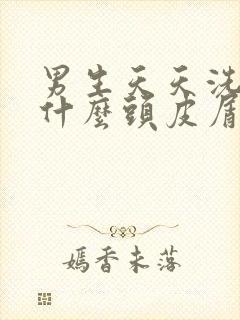 男生天天洗
什麼頭皮屑
嫣香未落